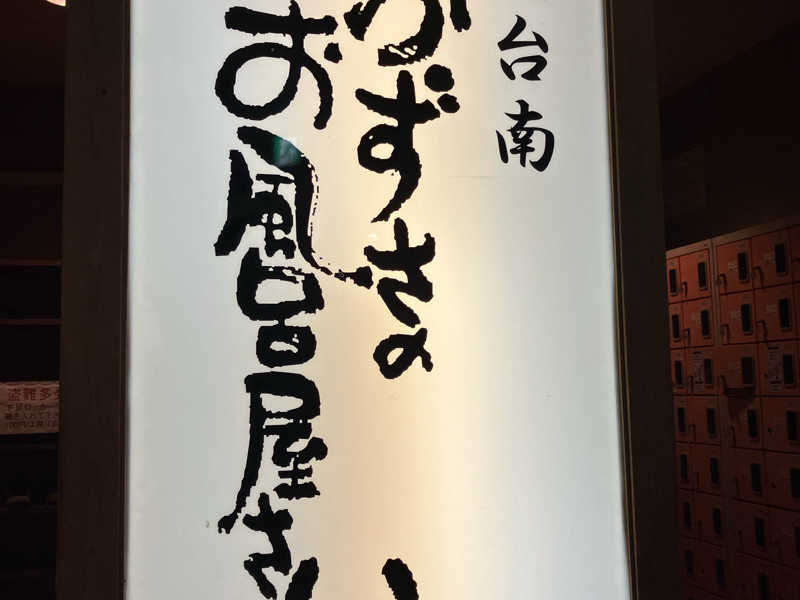 台南
かずさの
お風呂屋さん
盗難多